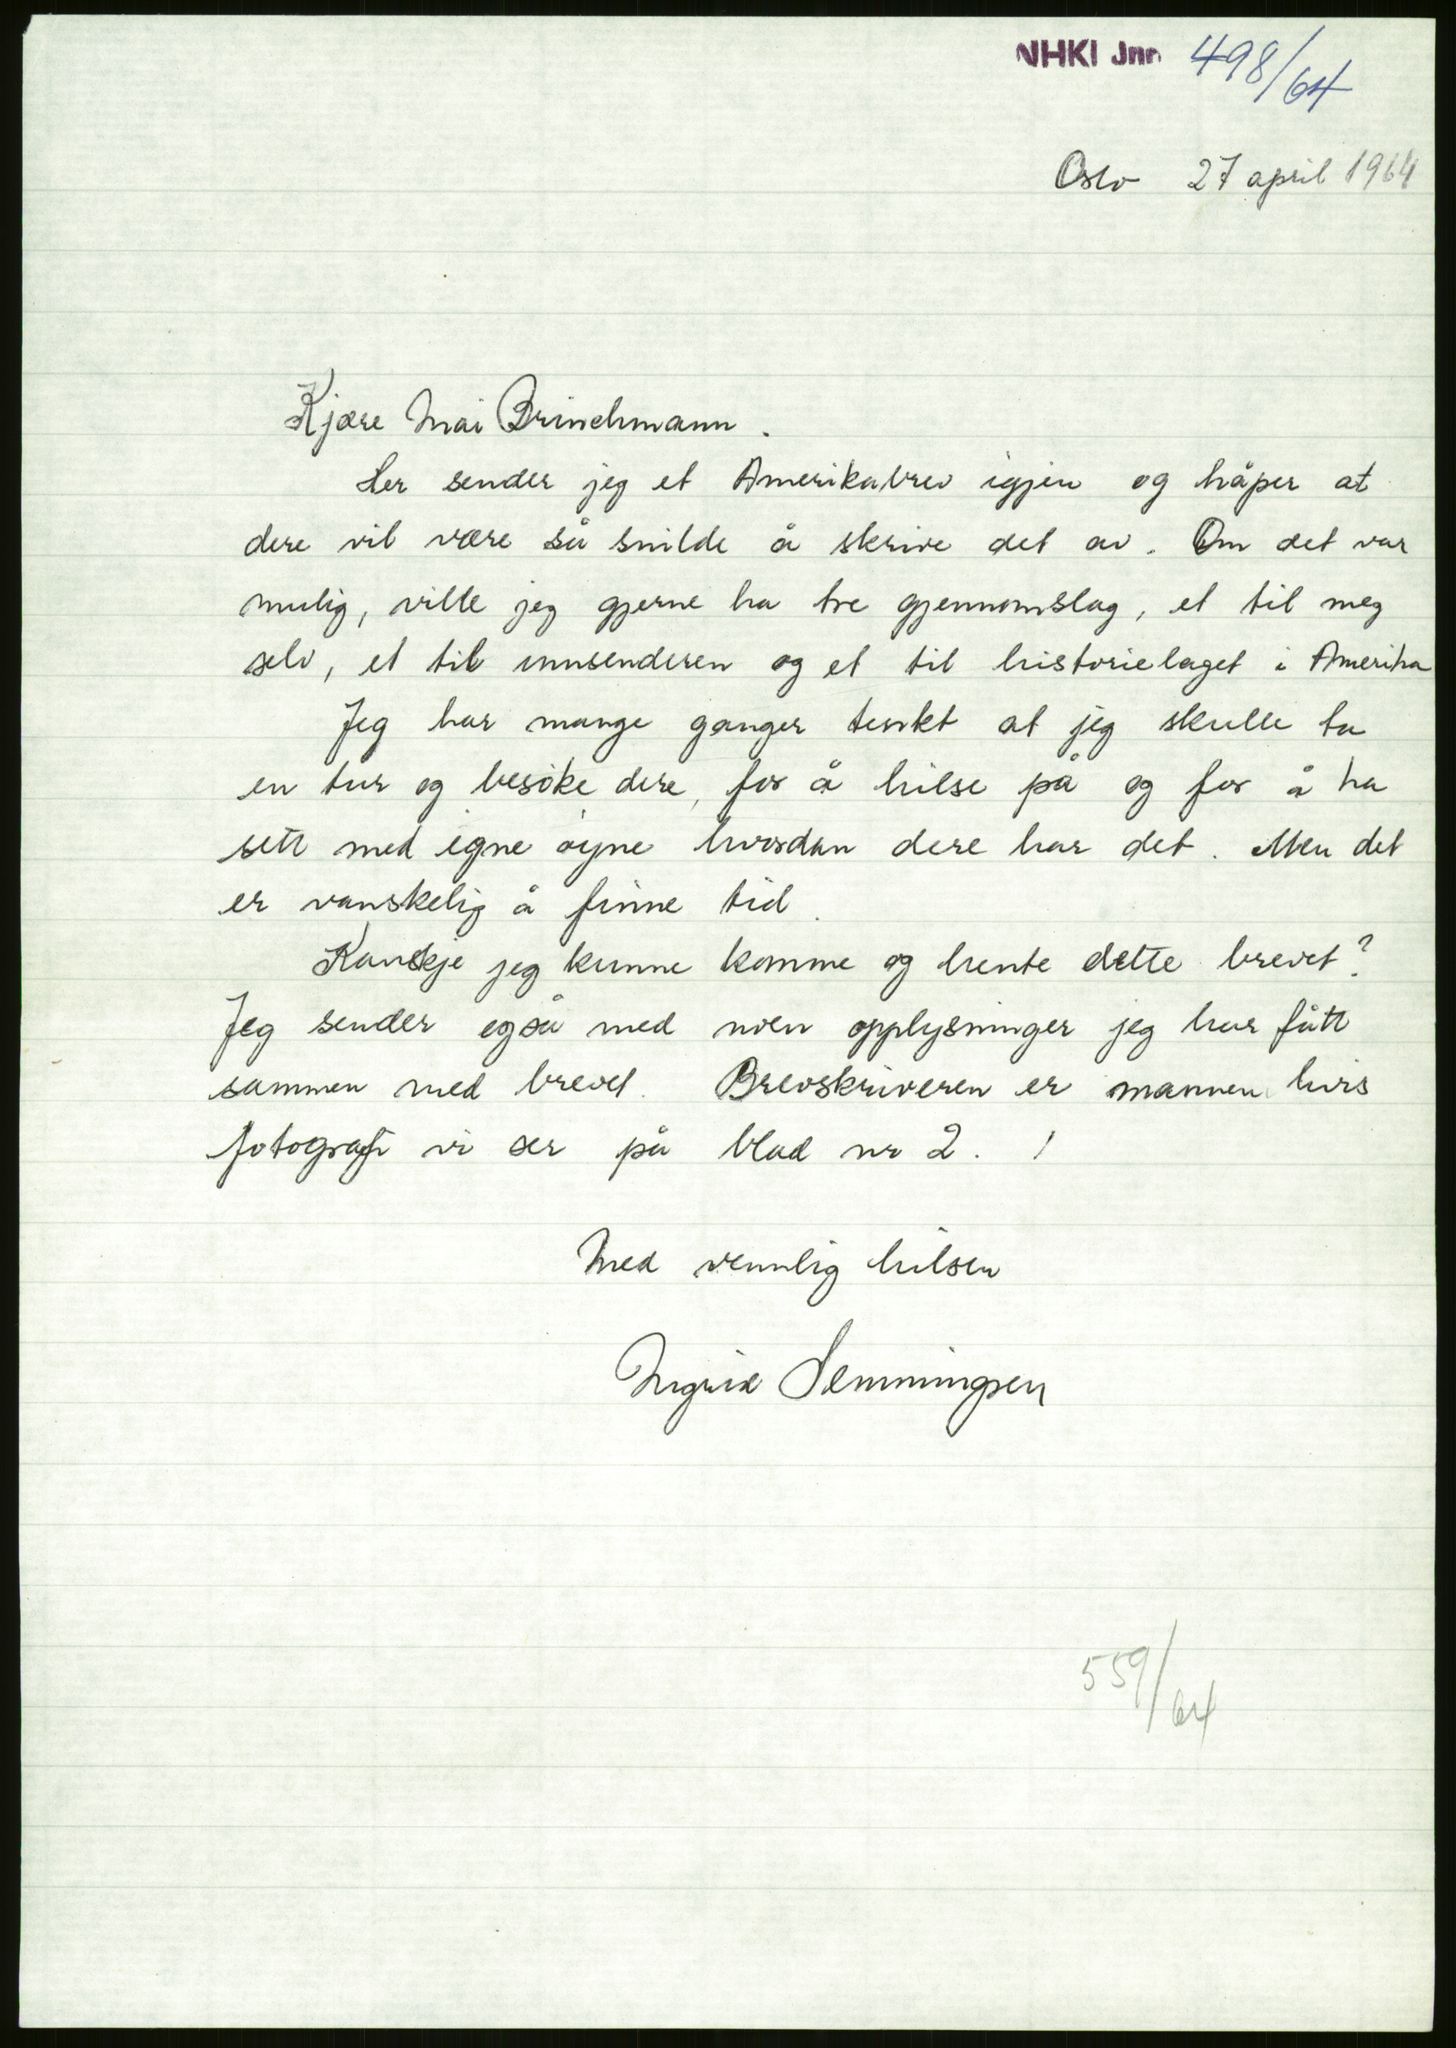 NHKI Jnr. 498/64
Oslo 27 april 1964
Kjære Mai Brinchmann.
Her sender jeg et Amerikabrev igjen og håper at
dere vil være så snilde å skrive det av. Om det var
mulig, ville jeg gjerne ha tre gjennomslag, et til meg
selv, et til innsenderen og et til historielaget i Amerika
Jeg har mange ganger tenkt at jeg skulle ta
en tur og besøke dere, for å hilse på og for å ha
sett med egne øyne hvordan dere har det. Men det
er vanskelig å finne tid.
Kanskje jeg kunne komme og hente dette brevet?
Jeg sender også med noen opplysninger jeg har fått
sammen med brevet. Brevskriveren er mannen hvis
fotografi vi ser på blad nr 2. !
Med vennlig hilsen
Ingrid Semmingsen
559/64